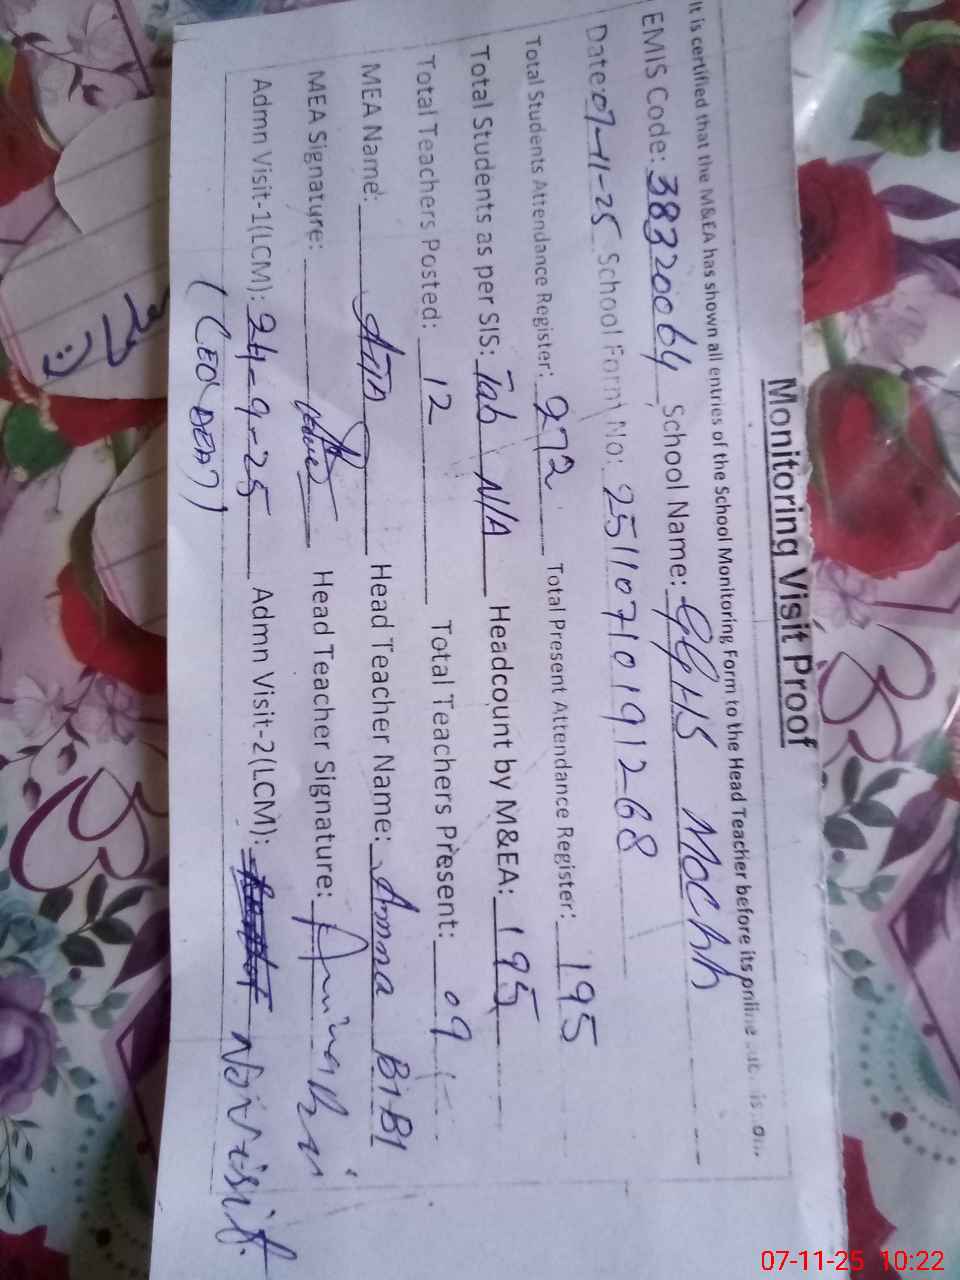 Monitoring Visit Proof
It is certified that the M&EA has shown all entries of the School Monitoring Form to the Head Teacher before its online
EMIS Code: 38320064 School Name: GGHS Mochh
Date: 07-11-25 School Form No: 25110710191268
Total Students Attendance Register: 272 Total Present Attendance Register: 195
Total Students as per SIS: Tab N/A Headcount by M&EA: 195
Total Teachers Posted: 12 Total Teachers Present: 09
MEA Name: Head Teacher Name: Amna BiBi
MEA Signature: Head Teacher Signature:
Admn Visit-1(LCM): 24-9-25 Admn Visit-2(LCM): No visit.
(CEO DEA)
07-11-25 10:22